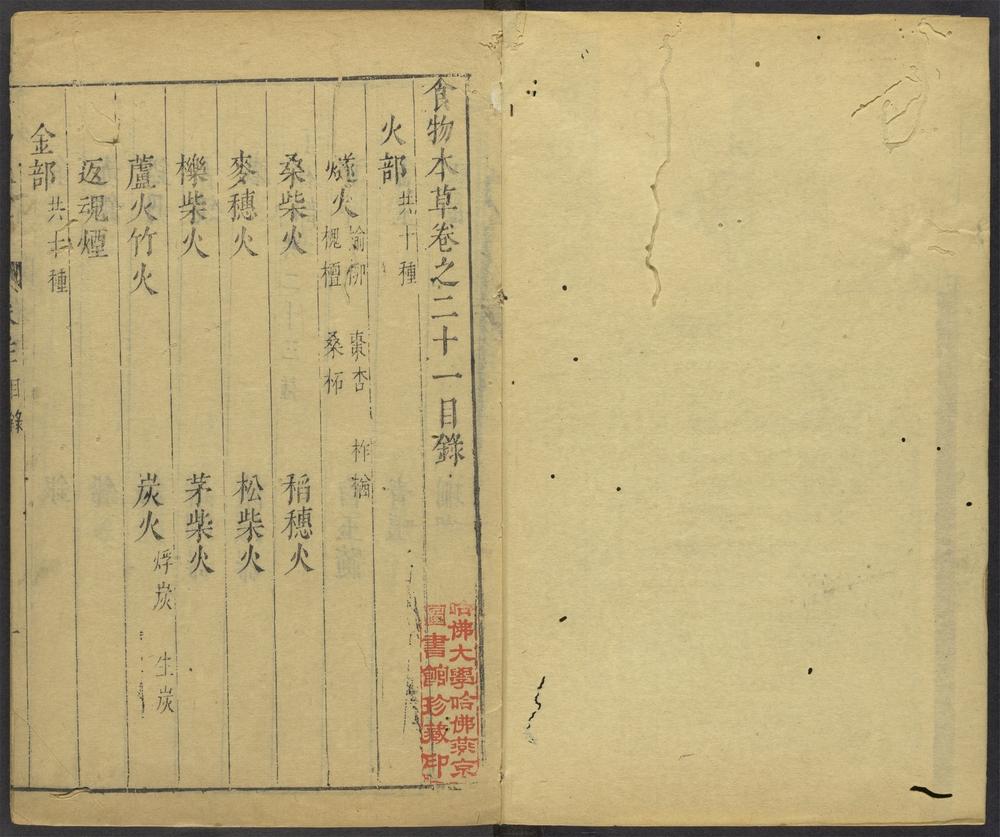 食物本草卷之二十一目錄
火部 共十種
燧火 榆柳 棗杏 柞楢 槐檀 桑柘
桑柴火 稻穗火
麥穗火 松柴火
櫟柴火 茅柴火
蘆火竹火 炭火 烰炭 生炭
返魂煙
金部 共 種
目錄
哈佛大學哈佛燕京
圖書館珍藏印